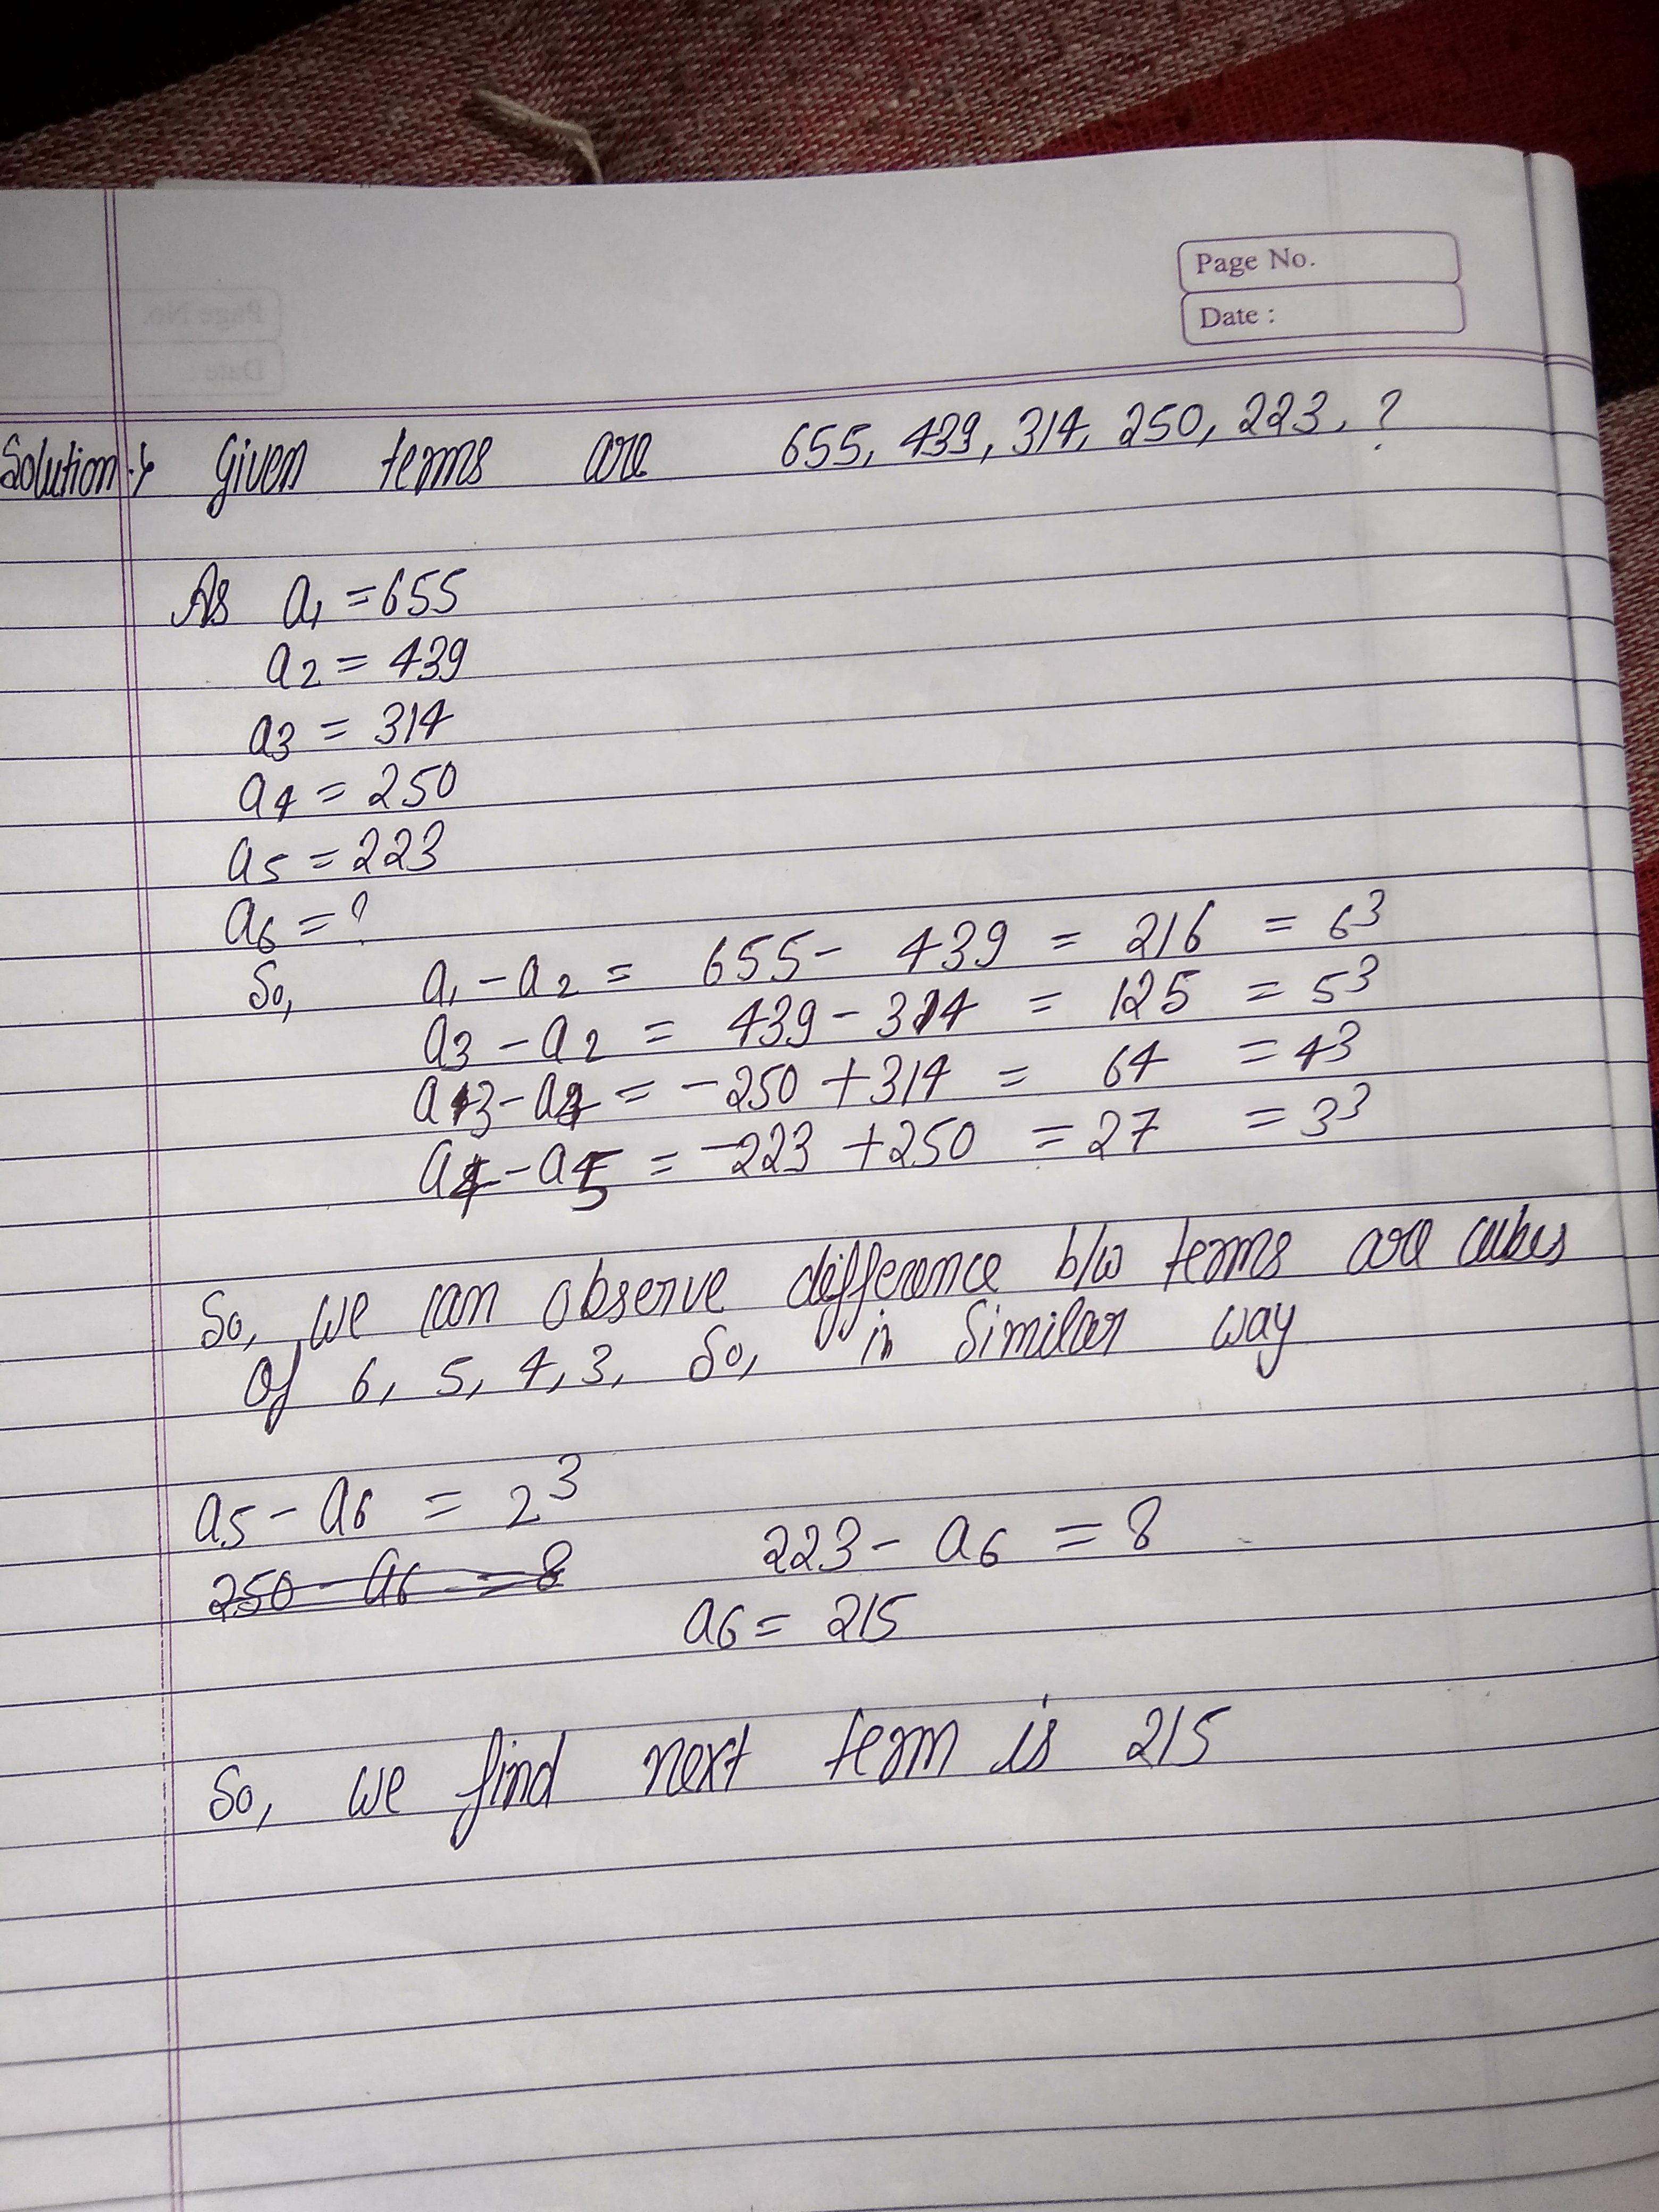 Page No.
Date :
Solution:→ Given terms are 655, 439, 314, 250, 223, ?
As a1 = 655
a2 = 439
a3 = 314
a4 = 250
a5 = 223
a6 = ?
So, a1 - a2 = 655 - 439 = 216 = 6³
a3 - a2 = 439 - 314 = 125 = 5³
a3 - a4 = -250 + 314 = 64 = 4³
a4 - a5 = -223 + 250 = 27 = 3³
So, we can observe difference b/w terms are cubes
Of 6, 5, 4, 3, So, in Similar way
a5 - a6 = 2³
250 - a6 = 8 223 - a6 = 8
a6 = 215
So, we find next term is 215